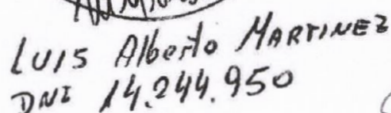 LUIS Alberto MARTINEZ
DNI 14.244.950